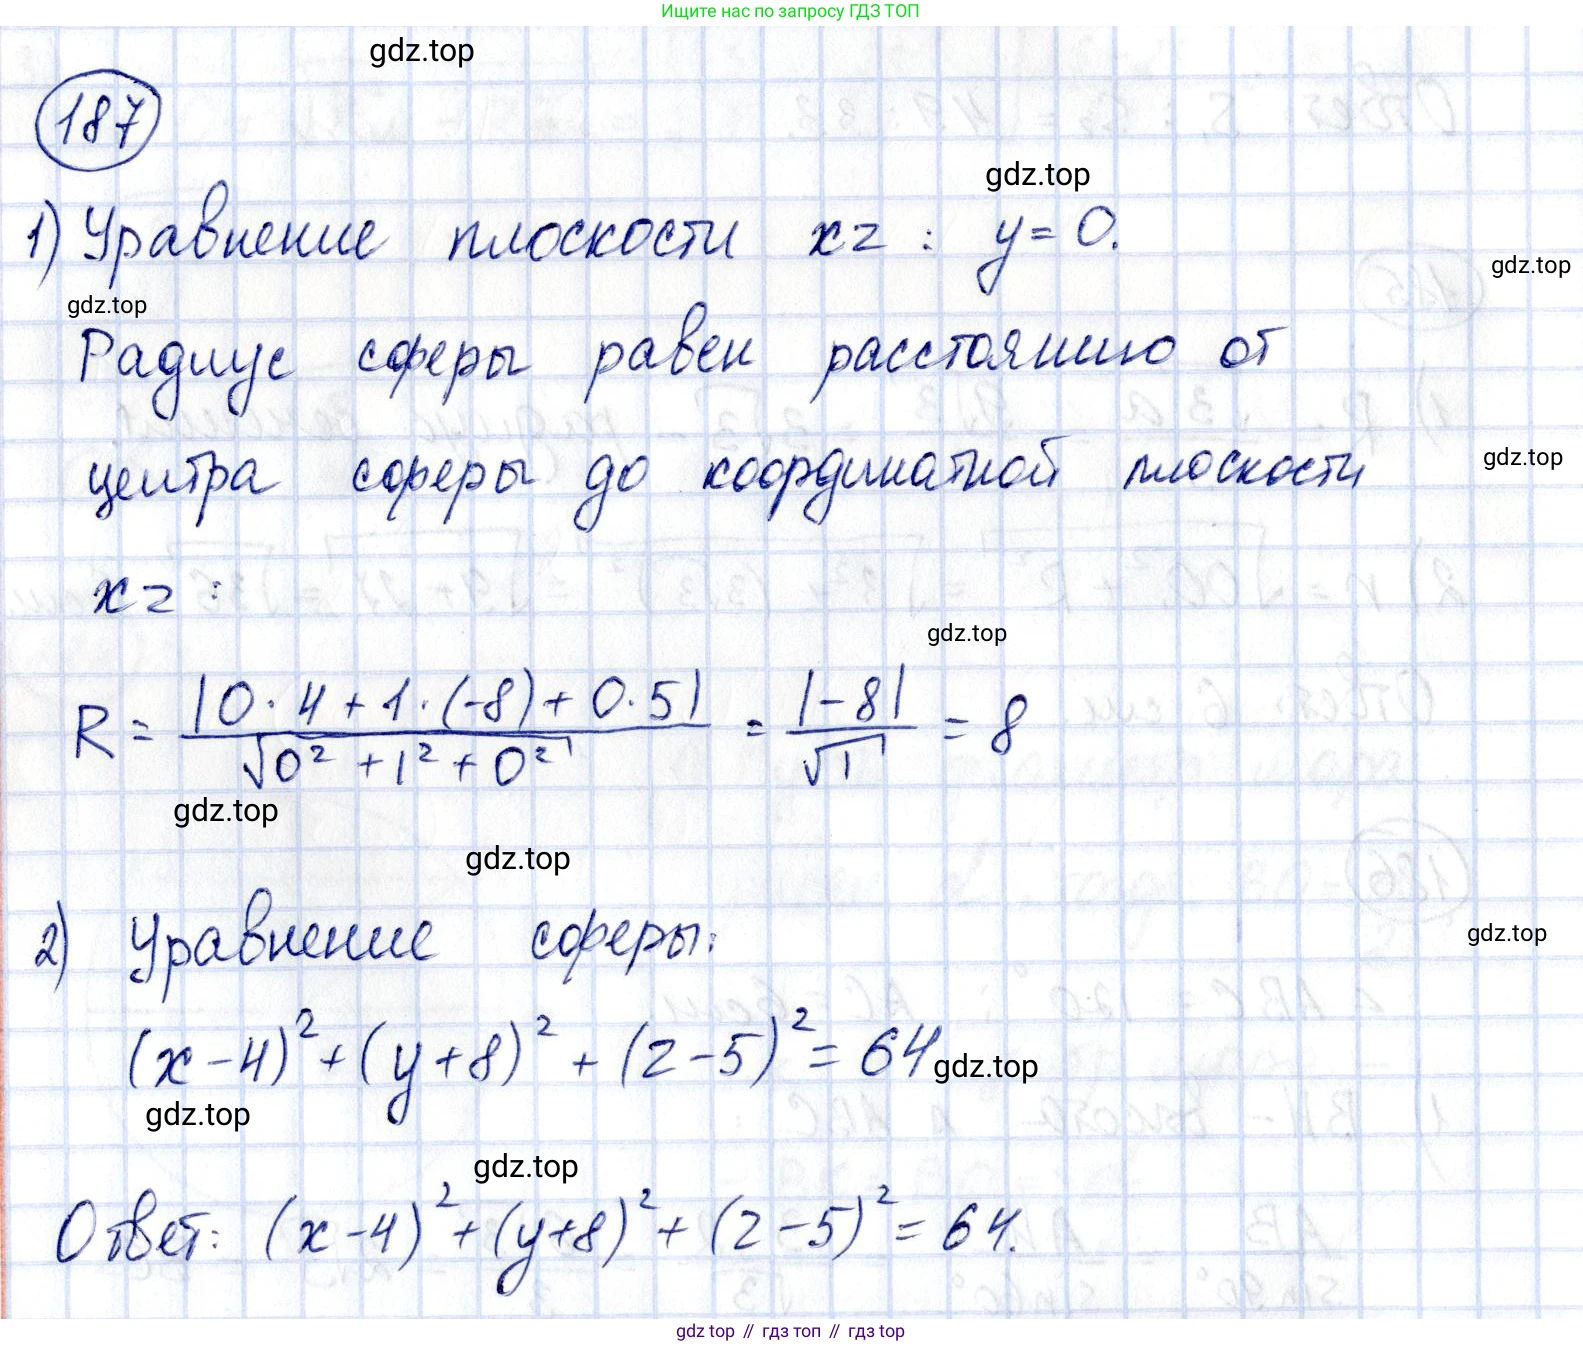 Ищите нас по запросу ГДЗ ТОП
gdz.top
187
gdz.top
1) Уравнение плоскости xz : y = 0.
gdz.top
gdz.top
Радиус сферы равен расстоянию от
центра сферы до координатной плоскости
gdz.top
xz :
gdz.top
R = |0·4+1·(-8)+0·5| / √(0²+1²+0²) = |-8| / √1 = 8
gdz.top
gdz.top
2) Уравнение сферы:
gdz.top
(x-4)²+(y+8)²+(z-5)²=64
gdz.top
gdz.top
gdz.top
Ответ: (x-4)²+(y+8)²+(z-5)²=64.
gdz top // гдз топ // гдз top